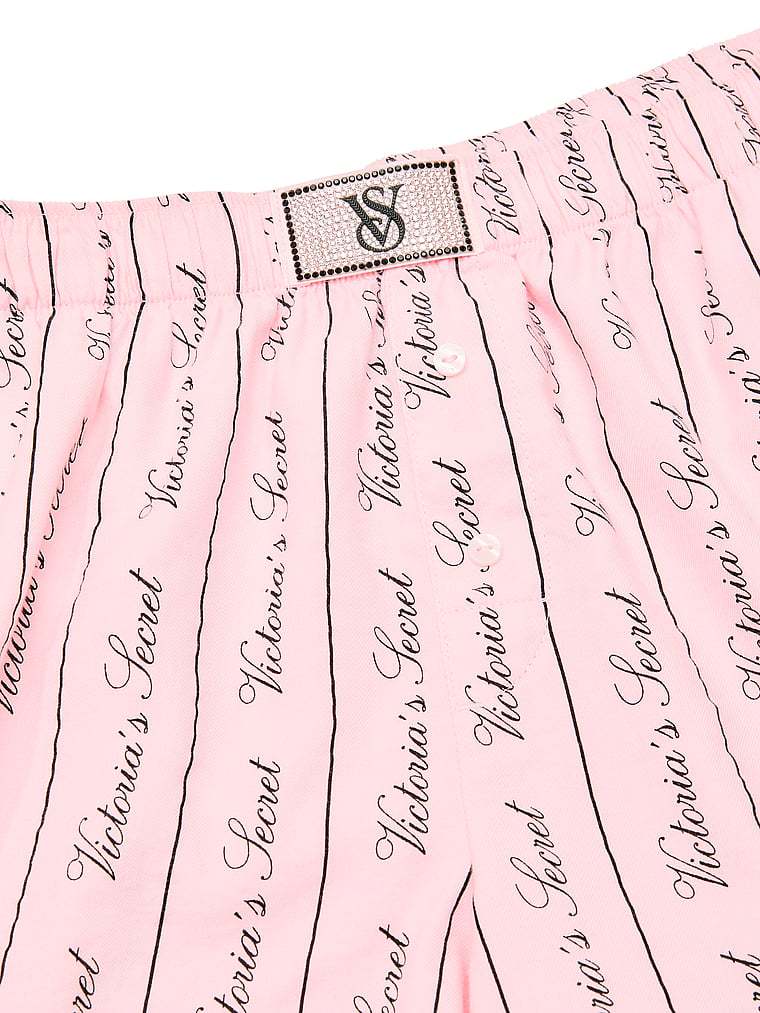 VS
Victoria's Secret
Victoria's
Victoria's Secret
Victoria's Secret
Victoria's Secret
Victoria's Secret
Victoria's Secret
Victoria's Secret
Victoria's Secret
Victoria's Secret
Victoria's Secret